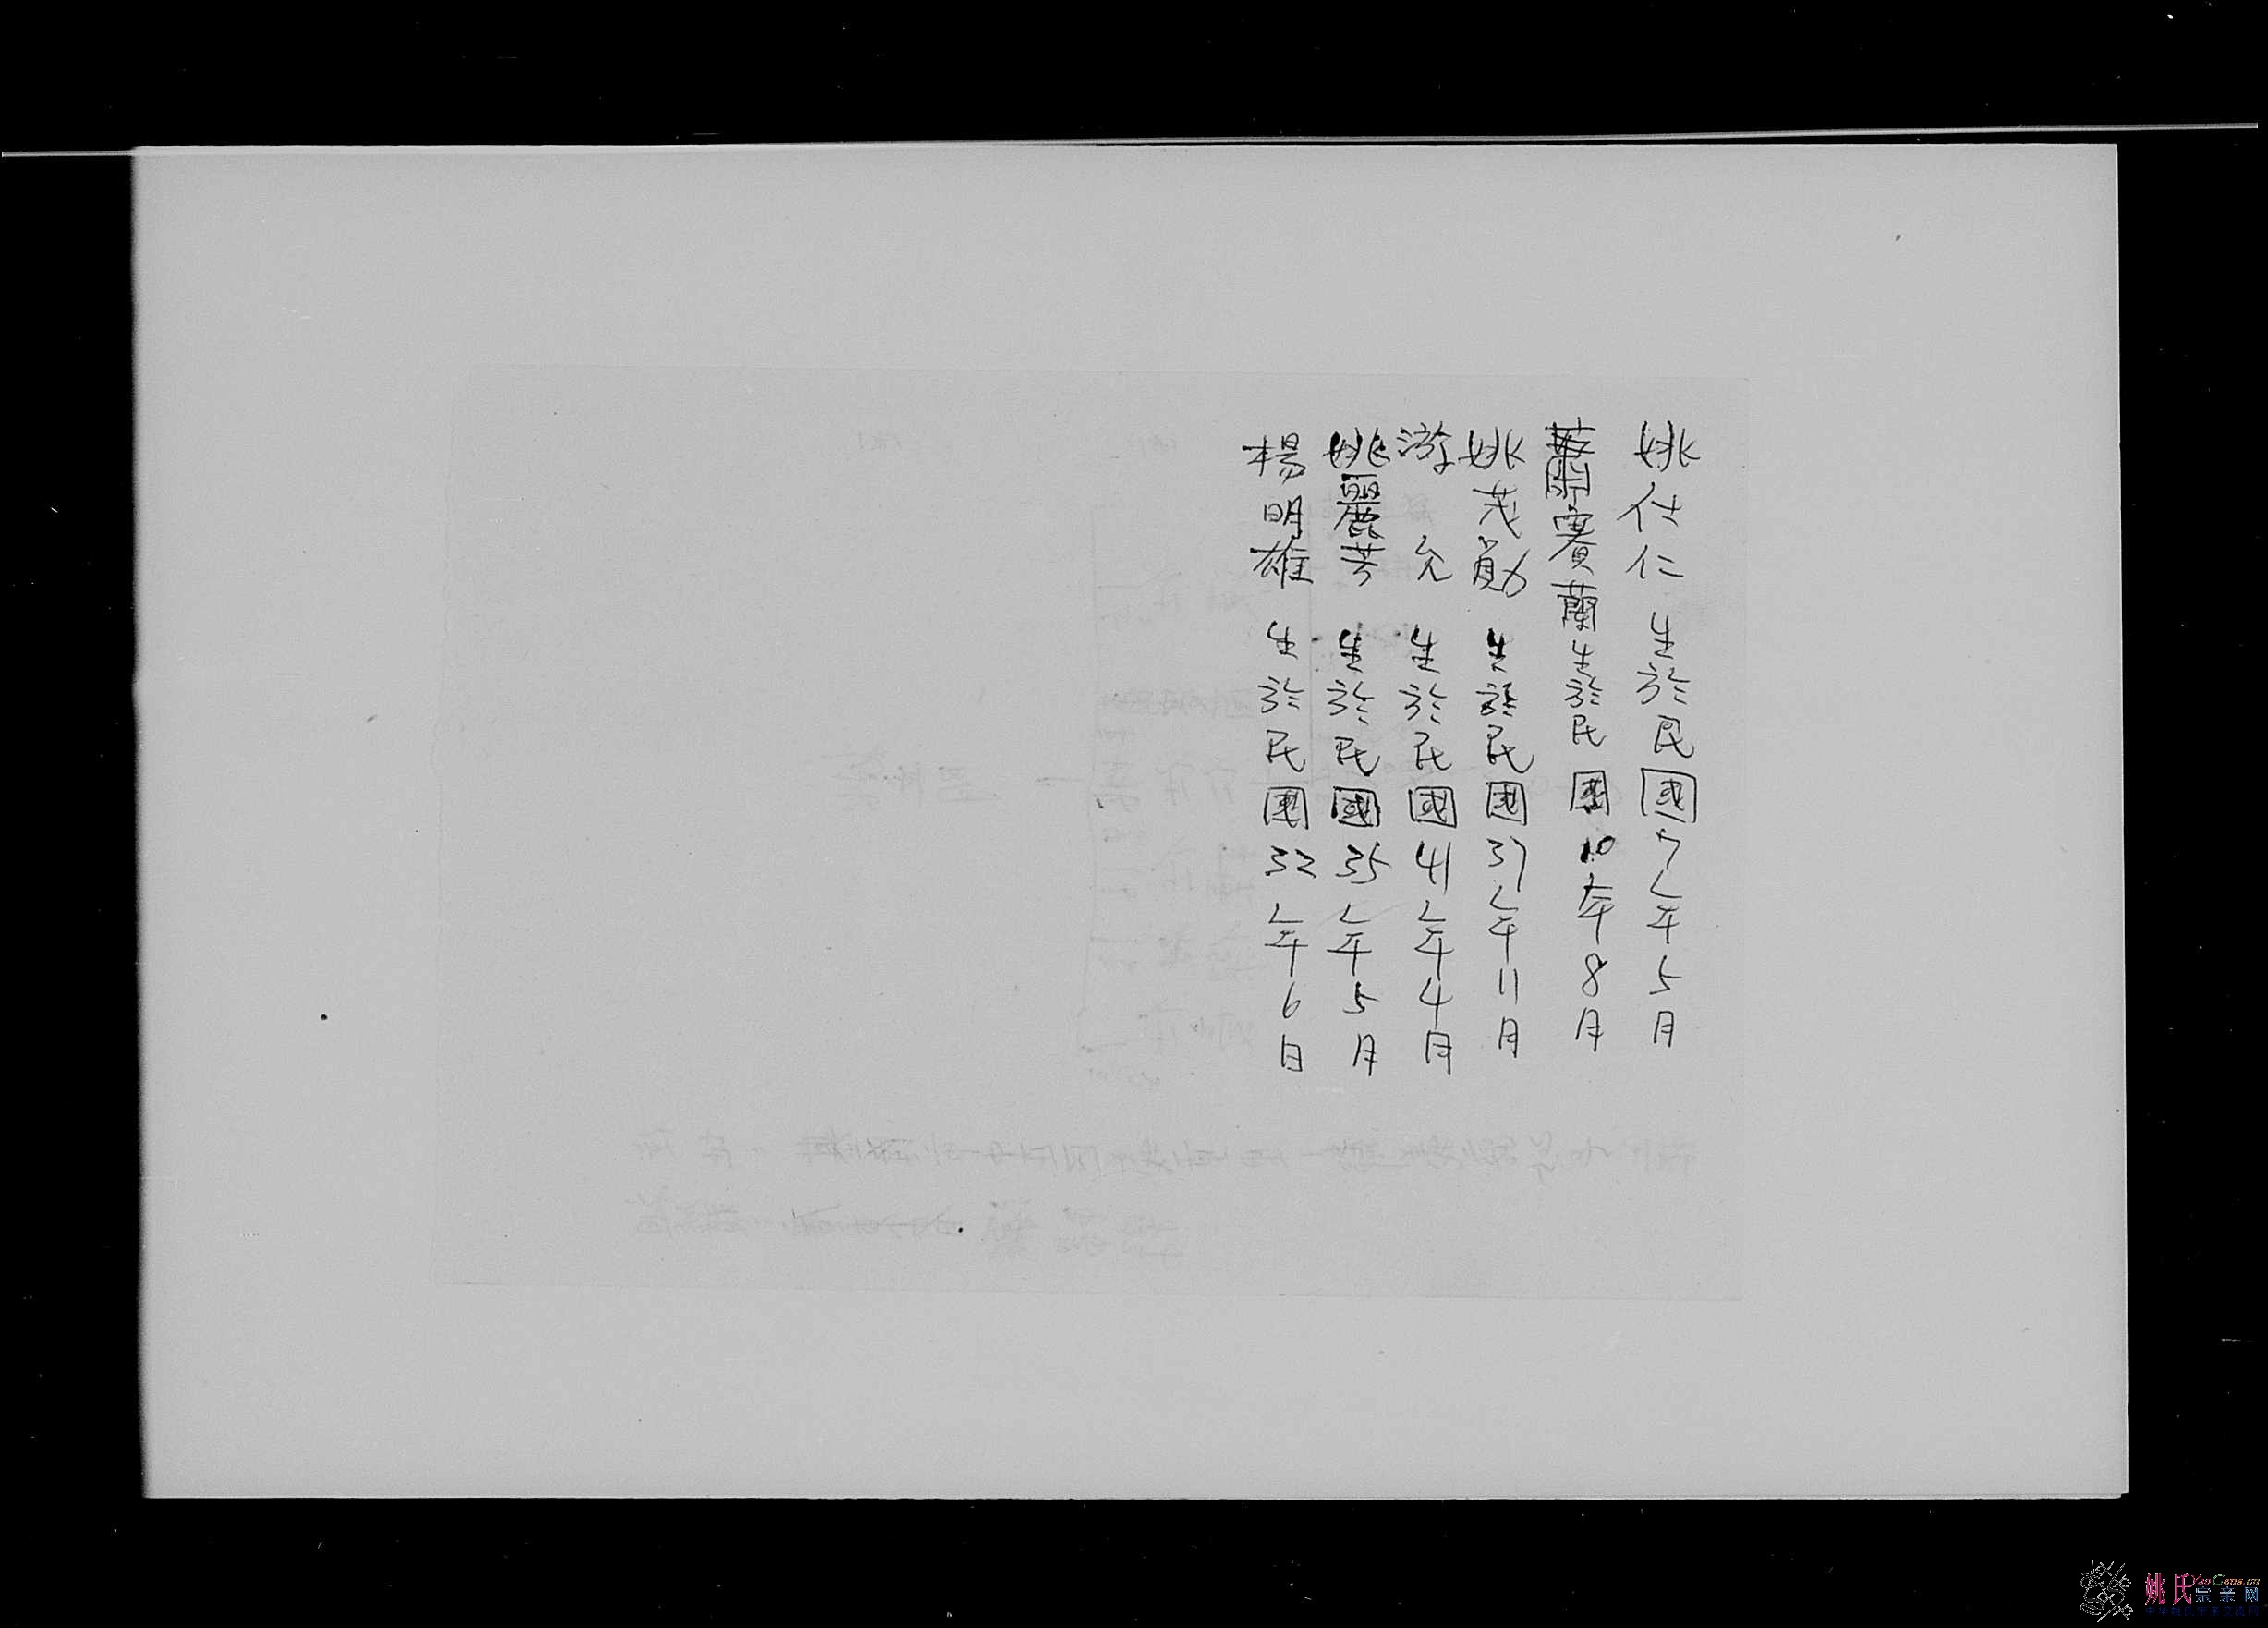 姚仕仁 生於民國7年5月
蕭寶蘭生於民國10年8月
姚茂勛 生於民國37年11月
游允 生於民國41年4月
姚麗芳 生於民國35年5月
楊明雄 生於民國32年6日
姚氏宗亲网
YaoGens.cn